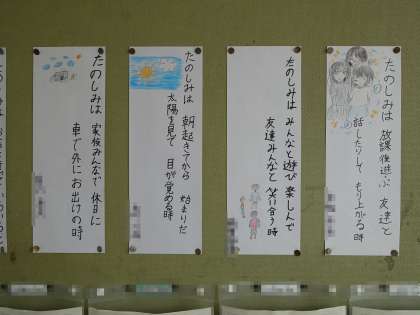 たのしみは 放課後遊ぶ 友達と
話したりして もり上がる時
たのしみは みんなと遊び 楽しんで
友達みんなと 笑い合う時
たのしみは 朝起きてから 始まりだ
太陽を見て 目が覚める時
たのしみは 家族みんなで 休日に
車で外に お出けの時
たのしみは